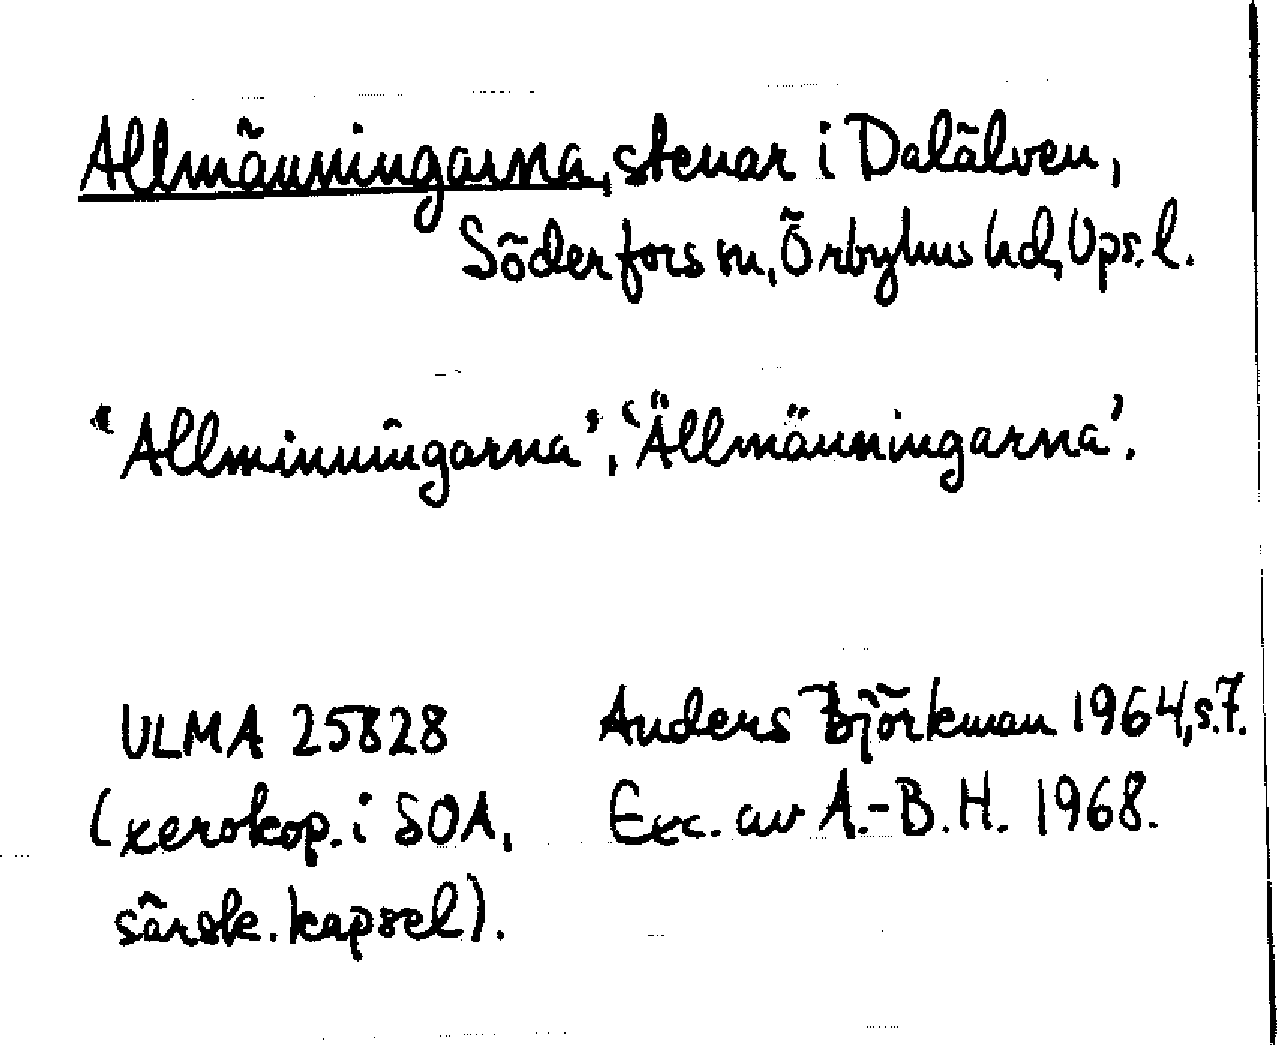 Allmänningarna, stenar i Dalälven,
Söderfors sn, Örbyhus hd, Ups. l.
"Allminningarna", "Ällmänningarna".
ULMA 25828
(xerokop. i SOA,
särsk. kapsel).
Anders Björkman 1964, s. 7.
Exc. av A.-B. H. 1968.